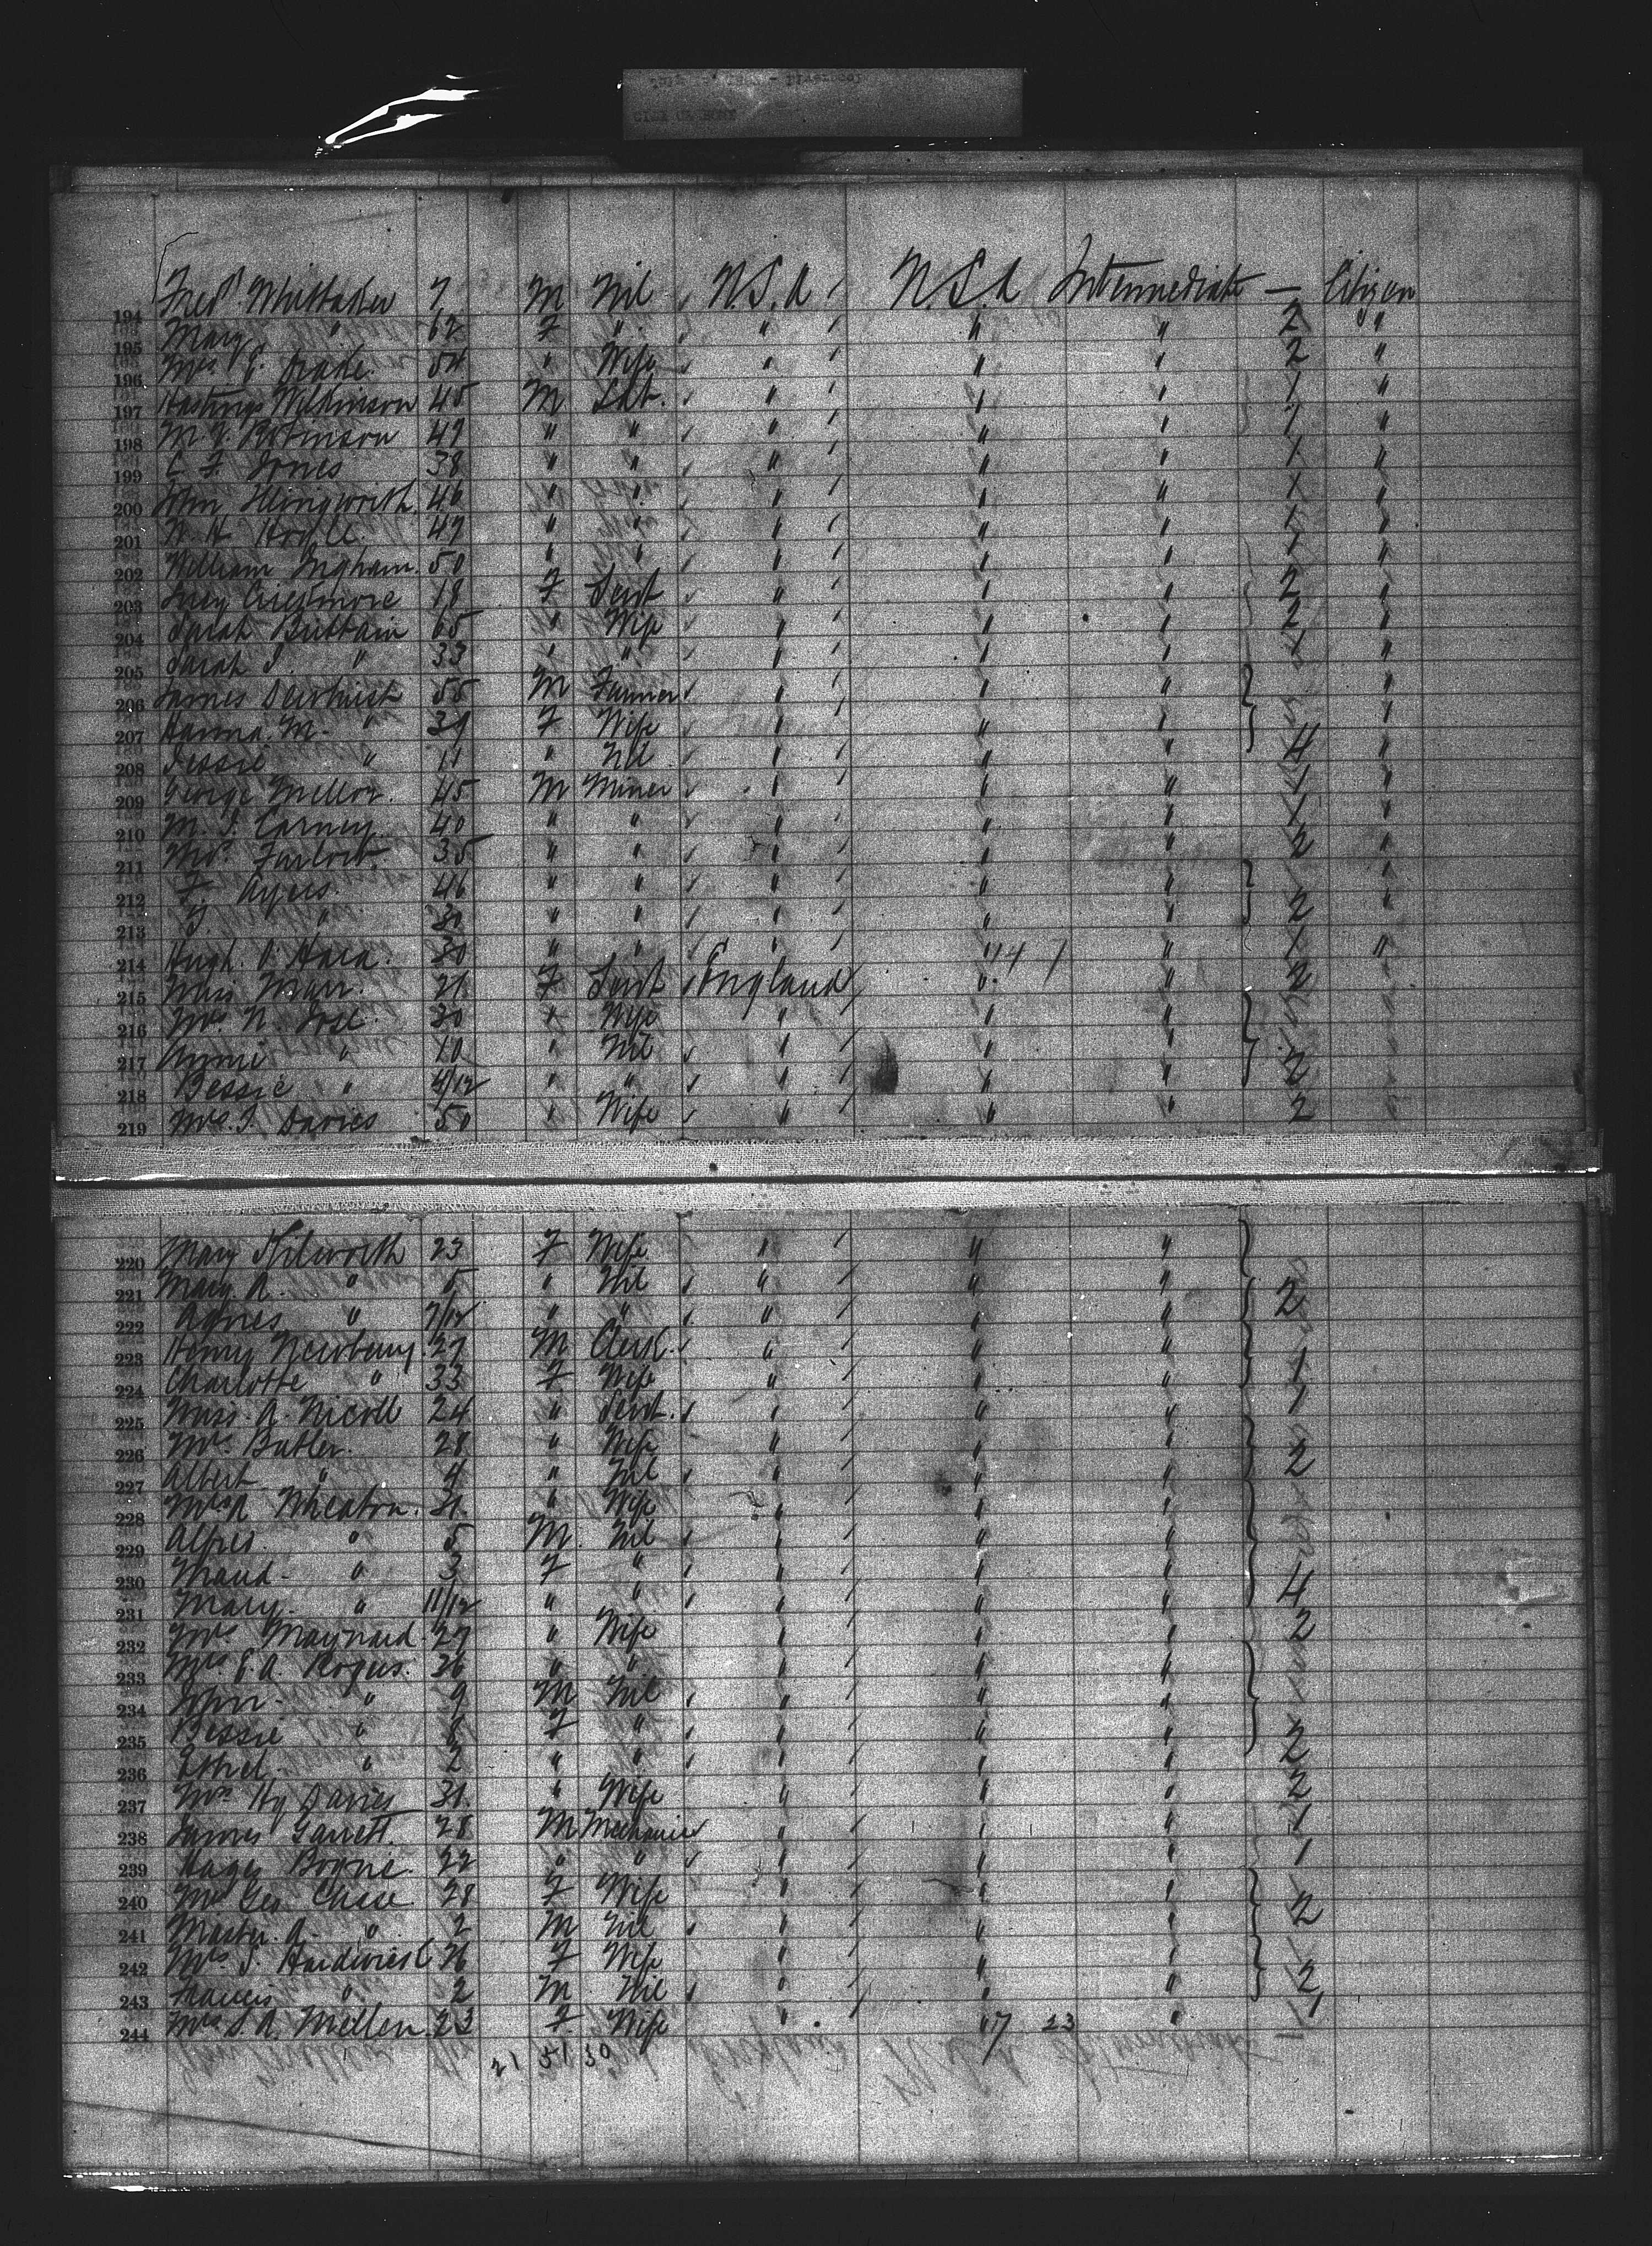 CITY OF ROME
194 Fred Whittaker 7 M Nil U.S.A U.S.A Intermediate — Citizen
195 Mary " 62 F " " " " 2 "
196 Mrs E. Drake 54 " Wife " " " 2 "
197 Hastings Wilkinson 45 M Lab. " " " 1 "
198 M. Y. Robinson 49 " " " " " 1 "
199 C F Jones 38 " " " " " 1 "
200 John Illingworth 46 " " " " " 1 "
201 H. H Hoyle 47 " " " " " 1 "
202 William Ingham 50 " " " " " 1 "
203 Lucy 18 F Servt " " " 2 "
204 Sarah Brittain 65 " Wife " " " 2 "
205 Sarah J " 33 " " " " " 1 "
206 James Dewhirst 55 M Farmer " " " "
207 Hanna M. " 39 F Wife " " " "
208 Jessie " 11 " Nil " " " 4 "
209 George Mellor 45 M Miner " " " 1 "
210 M. J. Carney 40 " " " " " 1 "
211 35 " " " " " 2 "
212 F Ayers 46 " " " " " "
213 " 30 " " " " " 2 "
214 Hugh O'Hara 30 " " " "14 1 " 1 "
215 Miss Marr 21 F Servt England " " 2
216 Mrs N. Jose 30 " Wife " " "
217 Annie " 10 " Nil " " "
218 Bessie " 4/12 " " " " " 2
219 Mrs. J. Davies 50 " Wife " " " 2
220 Mary Kilworth 23 F Wife " " "
221 Mary A. " 5 " Nil " " "
222 Agnes " 7/12 " " " " " 2
223 Henry Newbury 27 M Clerk " " "
224 Charlotte " 33 F Wife " " " 1
225 Miss A. Nicoll 24 " Servt. " " " 1
226 Mrs Butler 28 " Wife " " "
227 Albert " 4 " Nil " " " 2
228 Mrs R Wheaton 31 " Wife " " "
229 Alfred " 5 M Nil " " "
230 Maud " 3 F " " " "
231 Mary " 11/12 " " " " " 4
232 Mrs Maynard 27 " Wife " " " 2
233 Mrs E. A. Rogers 36 " " " " "
234 John " 9 M Nil " " "
235 Bessie " 8 F " " " "
236 Ethel " 2 " " " " " 2
237 Mrs Hy Davies 31 " Wife " " " 2
238 James Garrett 28 M Mechanic " " " 1
239 22 " " " " " 1
240 Mrs Geo Chase 28 F Wife " " "
241 Master A. " 2 M Nil " " " 2
242 Mrs J. Hardwick 26 F Wife " " "
243 Francis " 2 M Nil " " " 2
244 Mrs S. A. Mellen 23 F Wife " "17 23 " 1
21 51 30